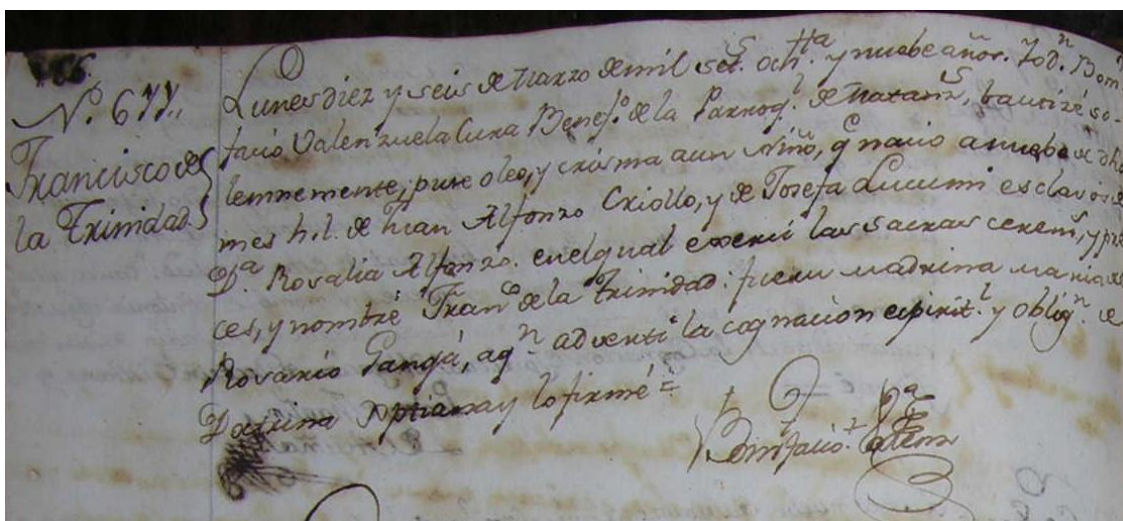 Nº 677,,
Francisco de
la Trinidad
Lunes diez y seis de Marzo de mil set.s och.ta y nuebe años. Yo d.n Boni
facio Valenzuela Cura Benef.o de la Parroq.l de Matanz.s, bautizé so-
lemnemente, puse oleo, y crisma a un Niño, q.e nacio a nuebe de dho
mes h. l. de Juan Alfonzo Criollo, y de Josefa Lucumi esclavos de
D.a Rosalia Alfonzo. en el qual exerci las sacras cerem.s, y pre
ces, y nombré Fran.co de la Trinidad: fue su Madrina Maria de
Rosario Gangá, a q.n adverti la cognacion espirit.l y oblig.n de
Doctrina Xptiana y lo firmé =
Bonifacio